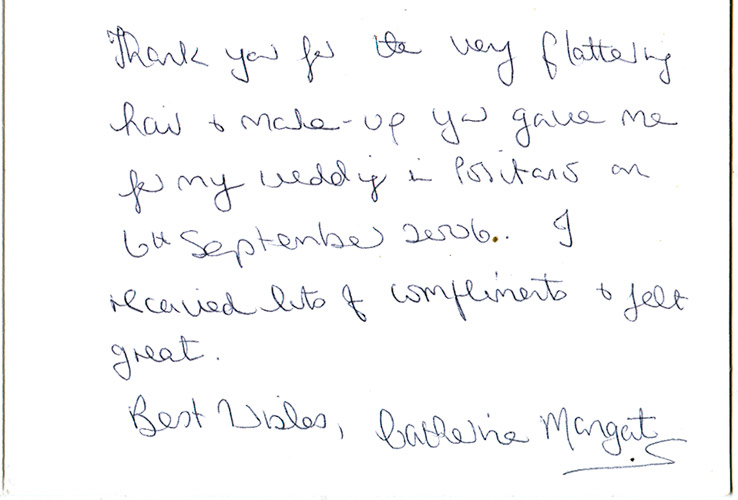 Thank you for the very flattering
hair & make-up you gave me
for my wedding in Positano on
6th September 2006.. I
received lots of compliments & felt
great.
Best Wishes, Catherine Mangat